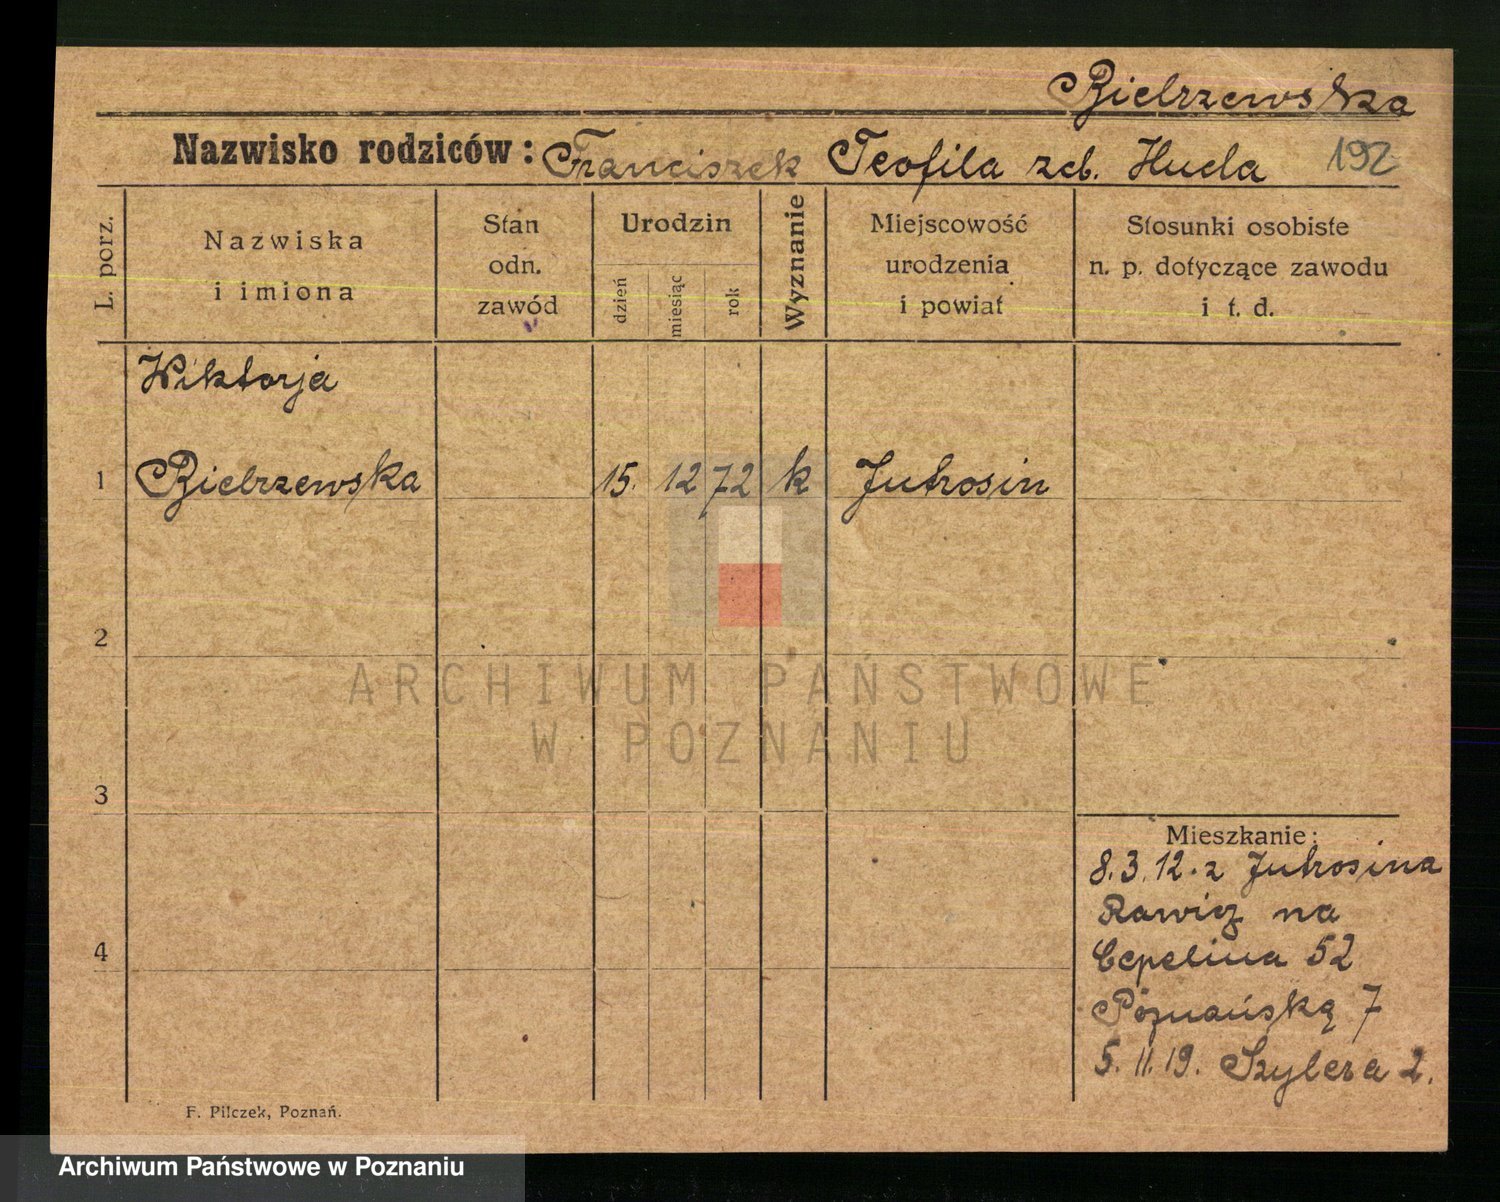 Bielrzewska
Nazwisko rodziców: Franciszek Teofila zd. Huda 192
L. porz.
Nazwiska
i imiona
Stan
odn.
zawód
Urodzin
dzień
miesiąc
rok
Wyznanie
Miejscowość
urodzenia
i powiat
Stosunki osobiste
n. p. dotyczące zawodu
i t. d.
Wiktorja
1 Bielrzewska 15. 12 72 k Jutrosin
2
3
4
Mieszkanie:
8.3.12. z Jutrosina
Rawicz na
Cepelina 52
Poznańską 7
5. 11. 19. Szylera 2.
F. Pilczek, Poznań.
ARCHIWUM PAŃSTWOWE
W POZNANIU
Archiwum Państwowe w Poznaniu